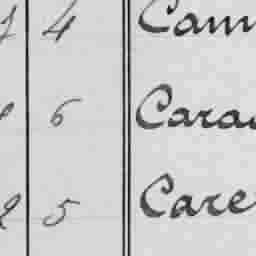 4 Cam
6 Cara
2 5 Care